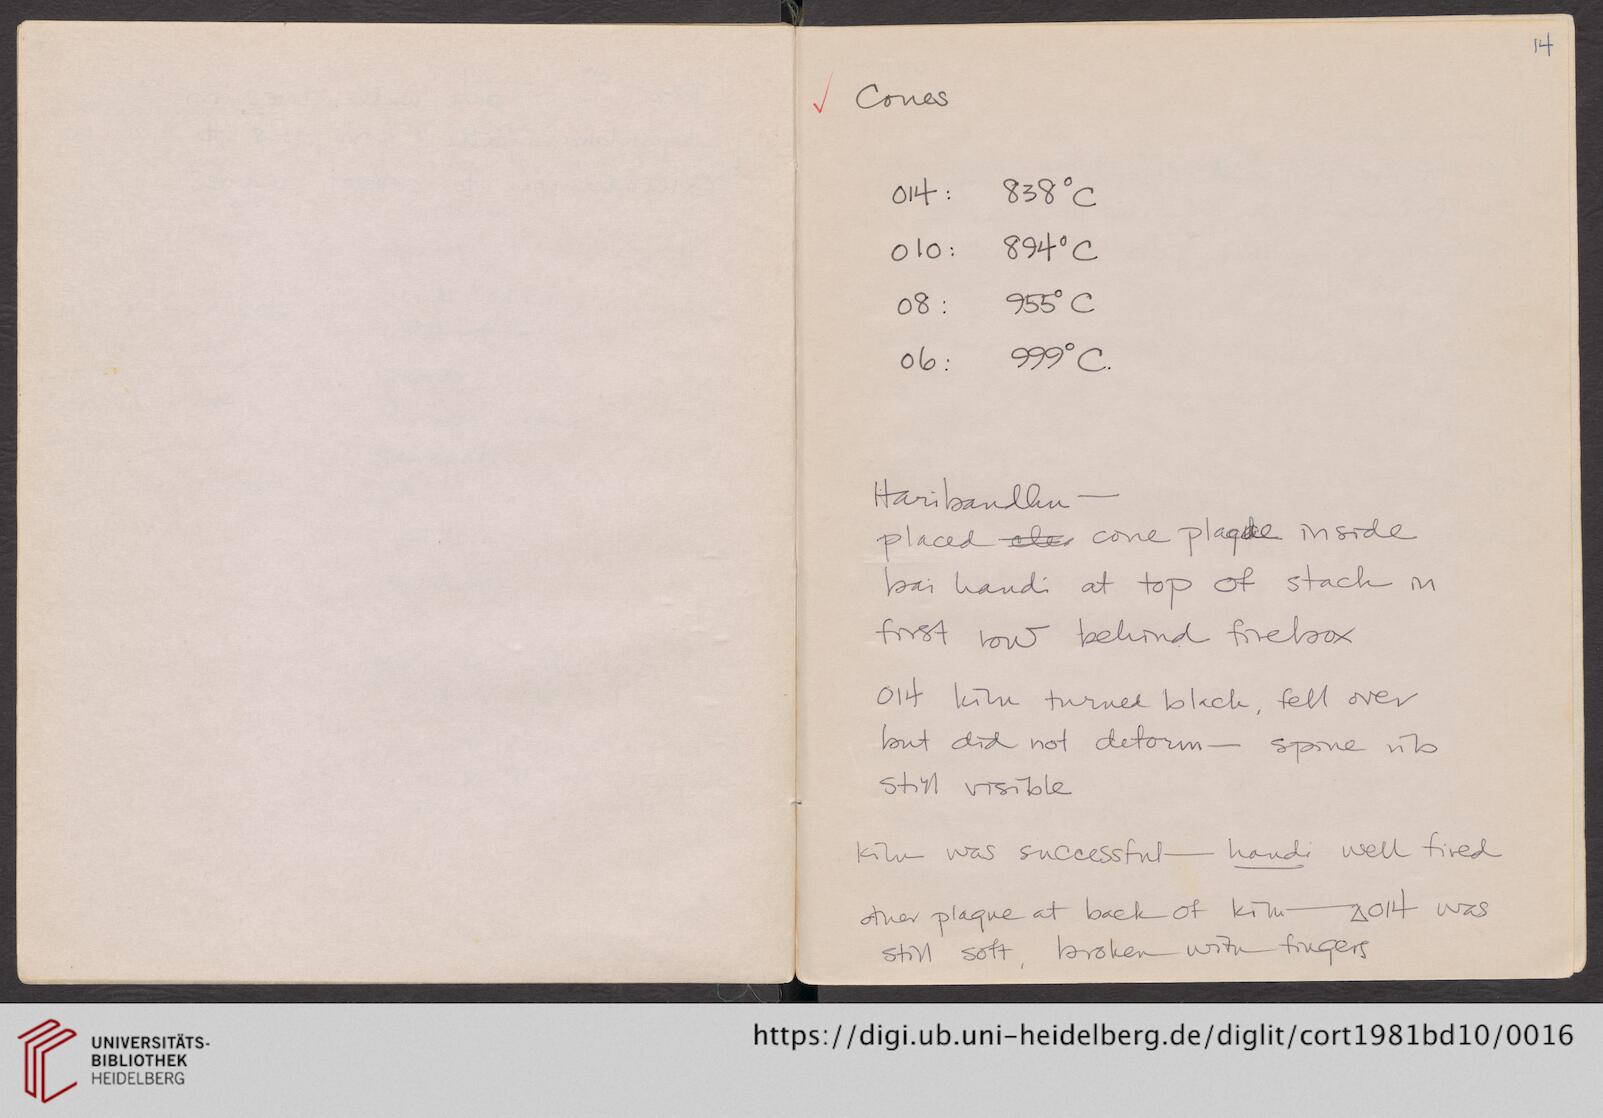 14
✓ Cones
014: 838°C
010: 894°C
08: 955°C
06: 999°C.
Haribandhu —
placed cone plaque inside
bai handi at top of stack in
first row behind firebox
014 kiln turned black, fell over
but did not deform — spine rib
still visible
kiln was successful — handi well fired
other plaque at back of kiln — Δ014 was
still soft, broken with fingers
UNIVERSITÄTS-
BIBLIOTHEK
HEIDELBERG
https://digi.ub.uni-heidelberg.de/diglit/cort1981bd10/0016